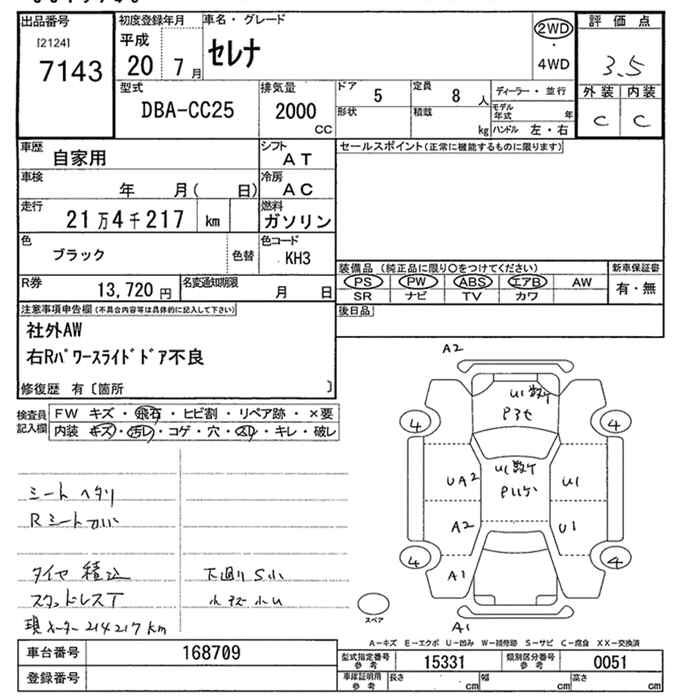 出品番号
[2124]
7143
初度登録年月
平成
20 7月
車名・グレード
セレナ
2WD
・
4WD
評価点
3.5
外装 内装
C C
型式
DBA-CC25
排気量
2000
CC
ドア
5
定員
8 人
形状
積載
kg
ディーラー・並行
モデル年式 年
ハンドル 左・右
車歴
自家用
シフト
AT
車検
年 月( 日)
冷房
AC
走行
21万4千217 km
燃料
ガソリン
色
ブラック
色替
色コード
KH3
R券
13,720円
名変通知期限
月 日
セールスポイント(正常に機能するものに限ります)
装備品(純正品に限り○をつけてください)
PS PW ABS エアB AW
SR ナビ TV カワ
新車保証書
有・無
後日品
注意事項申告欄(不具合内容等は具体的に記入して下さい)
社外AW
右Rパワースライドドア不良
修復歴 有〔箇所 〕
検査員記入欄
FW キズ・飛石・ヒビ割・リペア跡・×要
内装 キズ・汚レ・コゲ・穴・・キレ・破レ
シートヘタリ
Rシート
タイヤ積込
スタッドレスT
現メーター214217km
下廻りS小
A2
U1数ケ
P3ヒ
4 4
UA2
U1数ケ
U1
A2
U1
A1
4 4
A1
スペア
A−キズ E−エクボ U−凹み W−補修跡 S−サビ C−腐食 XX−交換済
車台番号
168709
登録番号
型式指定番号
参考
15331
類別区分番号
参考
0051
車庫証明用
参考
長さ cm
幅 cm
高さ cm